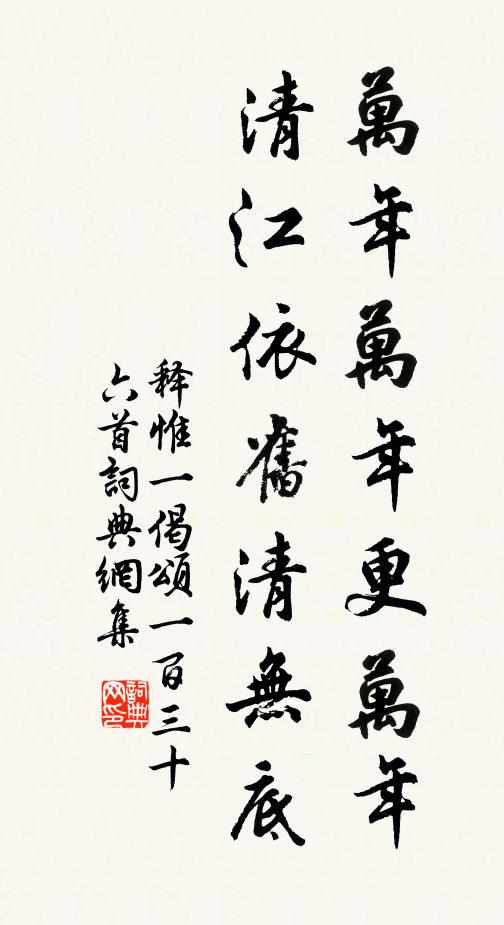 萬年萬年更萬年
清江依舊清無底
释惟一偈頌一百三十
六首詞典網集
詞典
网印